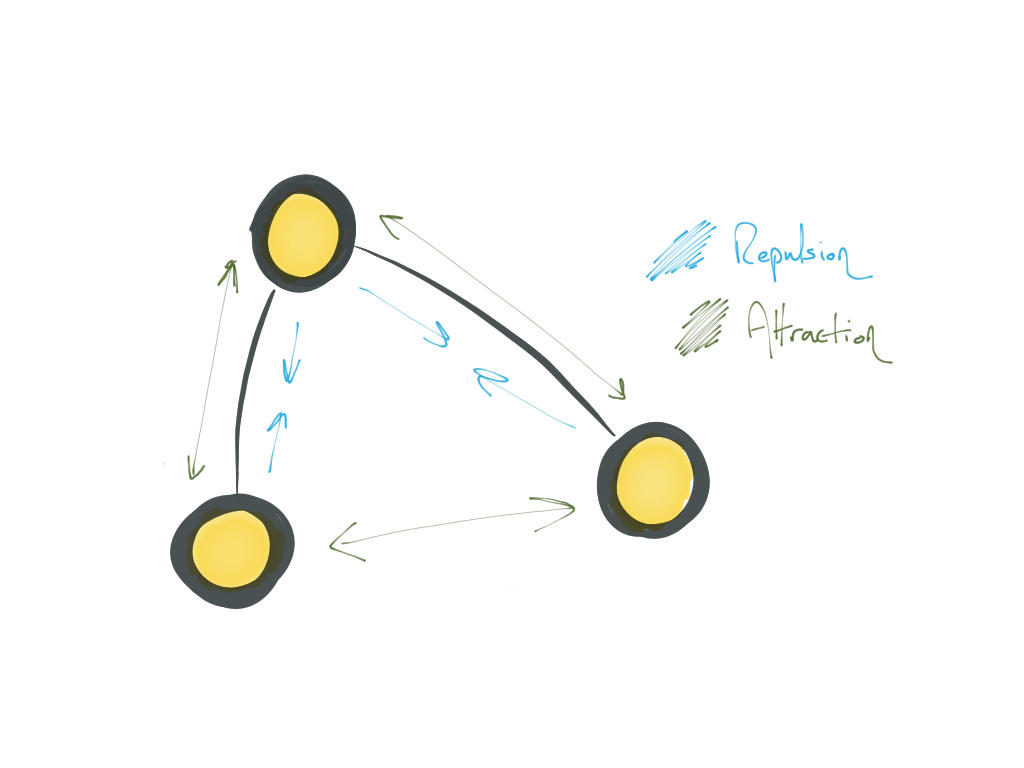 Repulsion
Attraction